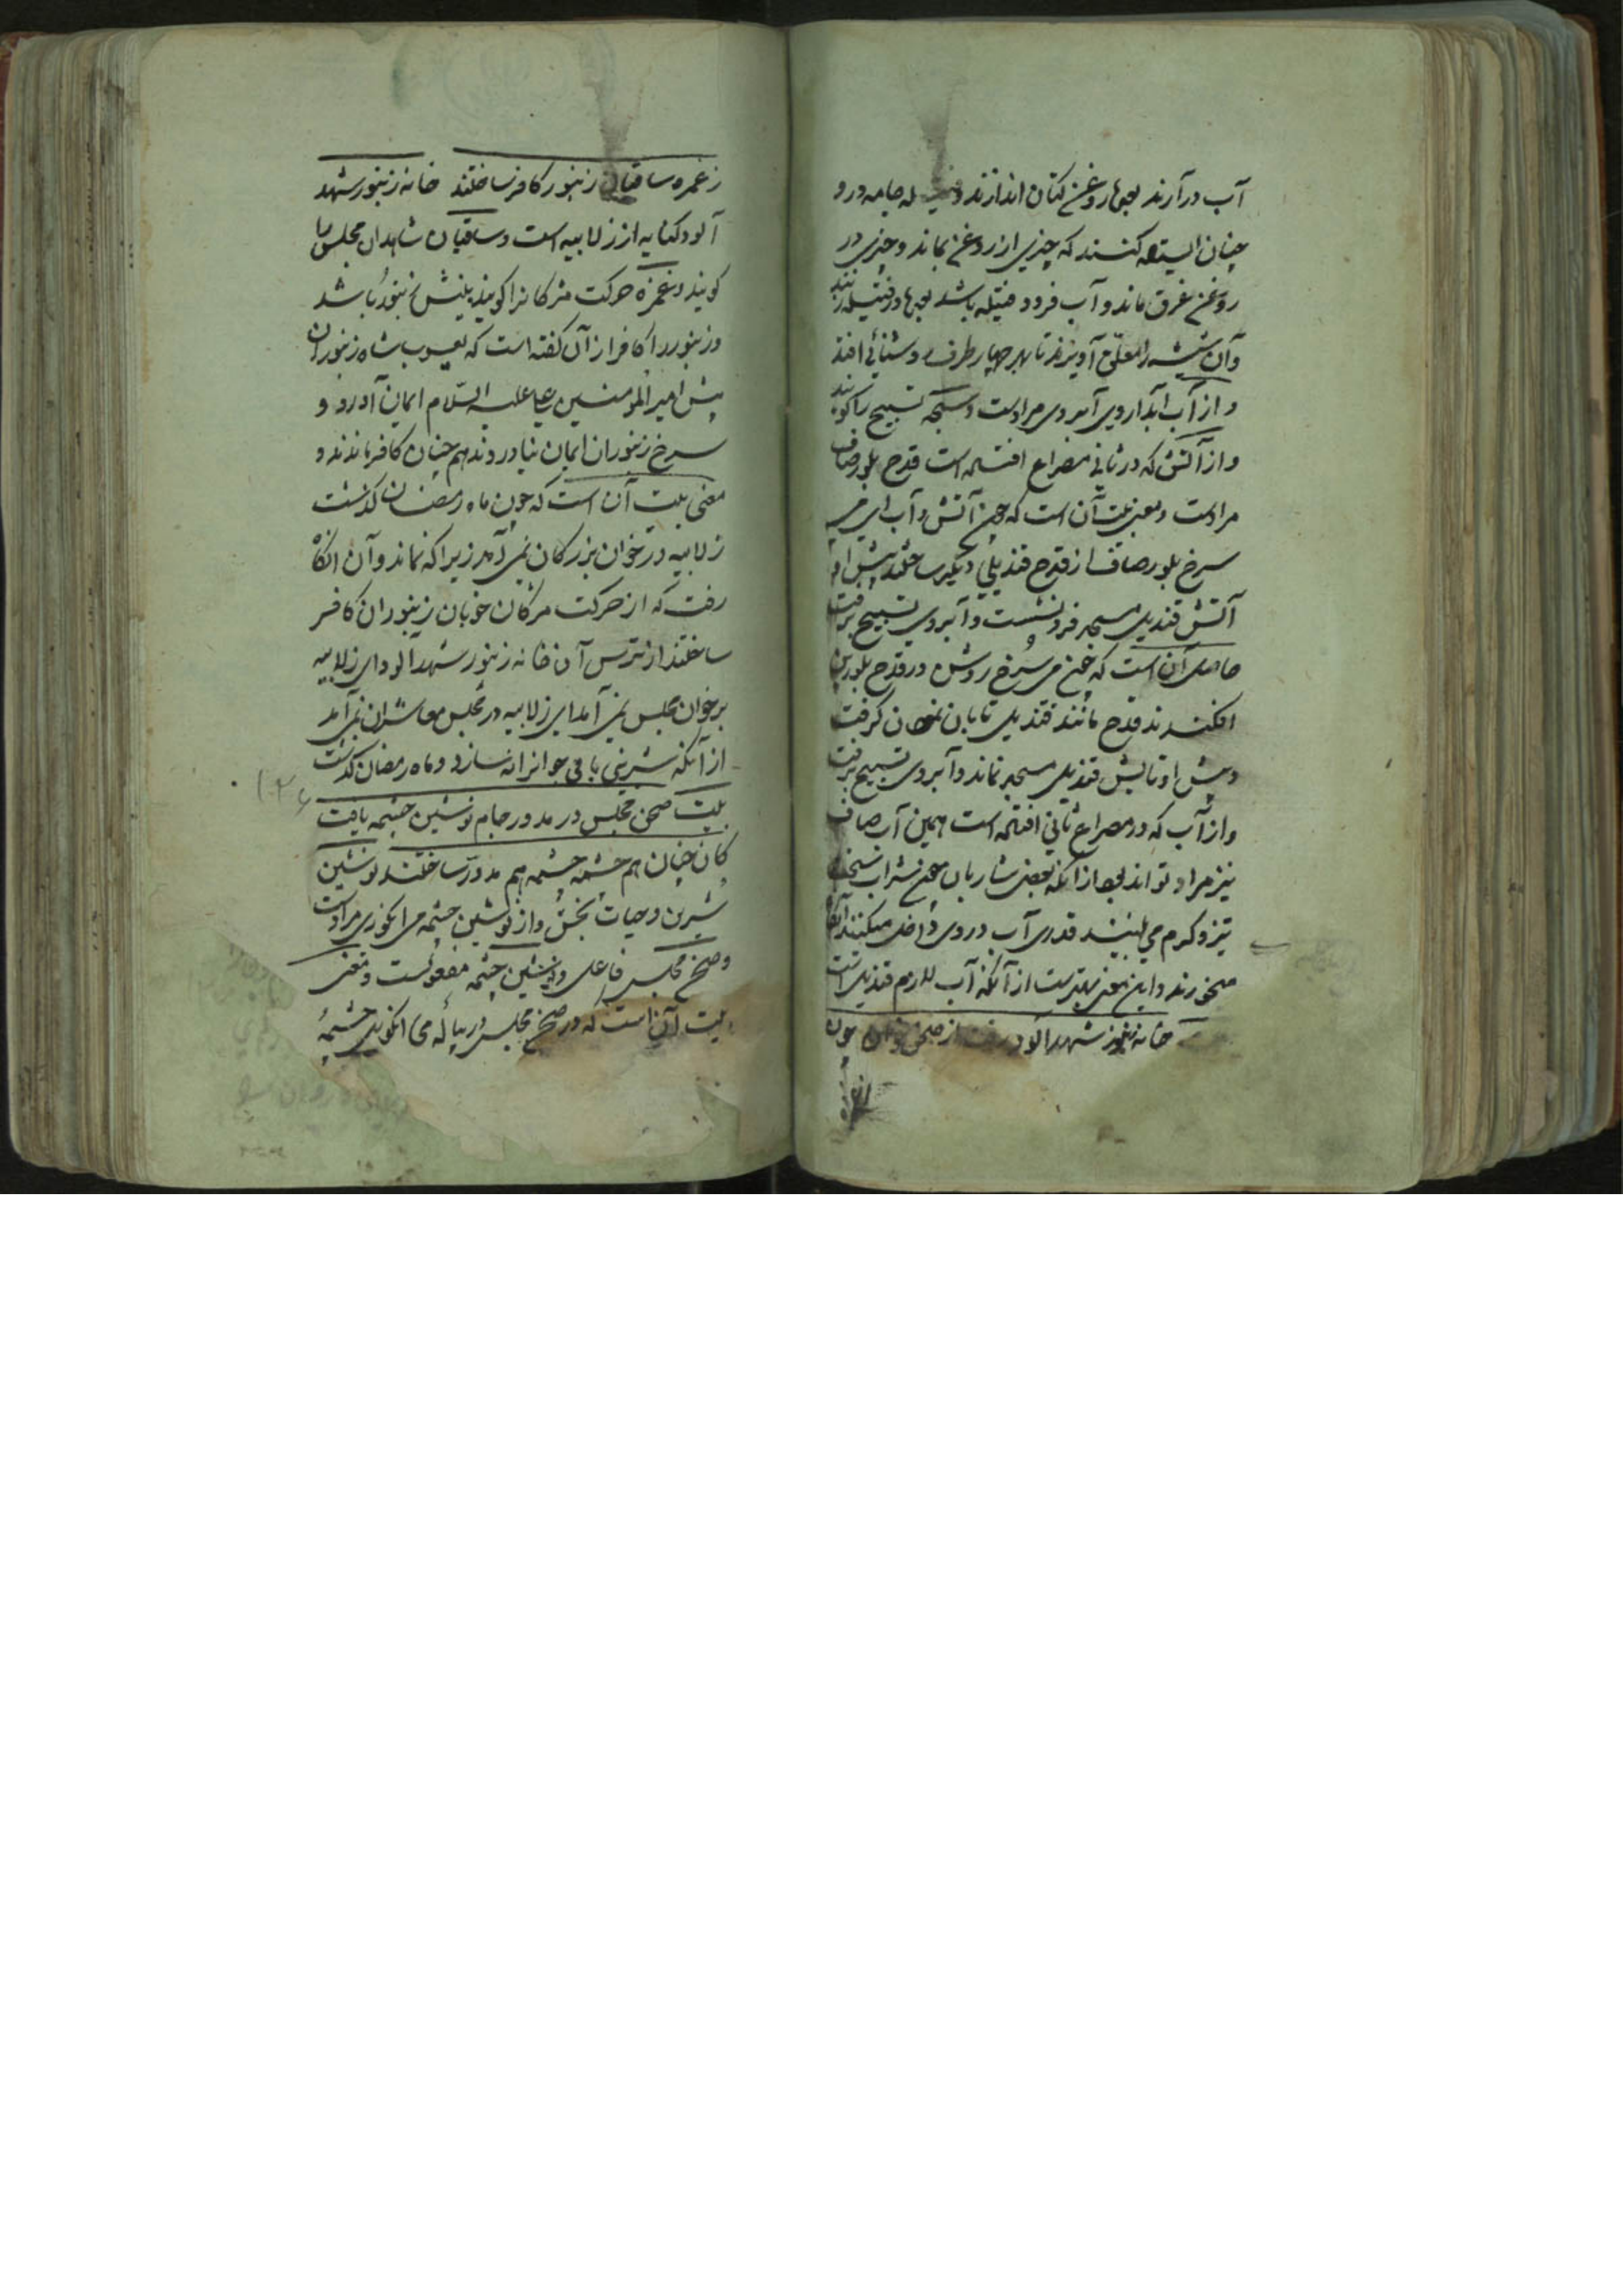 آب در آرند بعدها روغن کتان اندازند و جامه درو
چنان ایستاده کنند که چیزی از روغن بماند و چیزی در
روغن غرق ماند و آب فرود فتیله باشد بعدها در فتیله زنند
و آن شیشه را معلق آویزند تا بهر چهار طرف روشنائی افتد
و از آب آبدار روی آبروی مرادست و سبحه تسبیح را گویند
و از آتش که در ثانی مصراع افتاده است قدح بلور صاف
مرادست و معنی بیت آن است که چون آتش و آب ای می
سرخ بلور صاف از قدح قندیلی دیگر ساختند پیش او
آتش قندیل مسجد فرو نشست و آبروی تسبیح برفت
حاصل آن است که چون می سرخ روشن در قدح بلورین
افکندند قدح مانند قندیل تابان گرفت
و پیش او تابش قندیل مسجد نماند و آبروی تسبیح برفت
و از آب که در مصراع ثانی افتاده است همین آب صاف
نیز مراد تواند بود از آنکه بعضی شاربان چون شراب سخت
تیز و گرم می بینند قدری آب در وی داخل میکنند آنگاه
میخورند و این معنی بهترست از آنکه آب لازم قندیل است
خانه زنبور شهد آلود رفت از صحن خوان چون
از غمزه
ز غمزه ساقیان زنبور کافر ساختند خانه زنبور شهد
آلود کنایه از زلابیه است و ساقیان شاهدان مجلس را
گویند و غمزه حرکت مژگانرا گویند نیش زنبور باشد
و زنبور را کافر از آن گفته است که یعسوب شاه زنبوران
پیش امیر المومنین علی علیه السلام ایمان آورد و
سرخ زنبوران ایمان نیاوردند هم چنان کافر ماندند و
معنی بیت آن است که چون ماه رمضان گذشت
زلابیه در خوان بزرگان نمی آمد زیرا که نماند و آن آنگاه
رفت که از حرکت مژگان خوبان زنبوران کافر
ساختند از ترس آن خانه زنبور شهد آلود ای زلابیه
بر خوان مجلس نمی آمد ای زلابیه در مجلس معاشران نمی آمد
از آنکه شیرینی با می جوانرا نسازد و ماه رمضان گذشت
بیت صحن مجلس در مدور جام نوشین چشمه یافت
کان چنان هم چشمه چشمه هم مدور ساختند نوشین
شیرین و حیات بخش و از نوشین چشمه می انگوری مرادست
و صحن مجلس فاعل و نوشین چشمه مفعولست و معنی
بیت آن است که در صحن مجلس در پیاله می انگوری چشمهٔ
۱۲۶